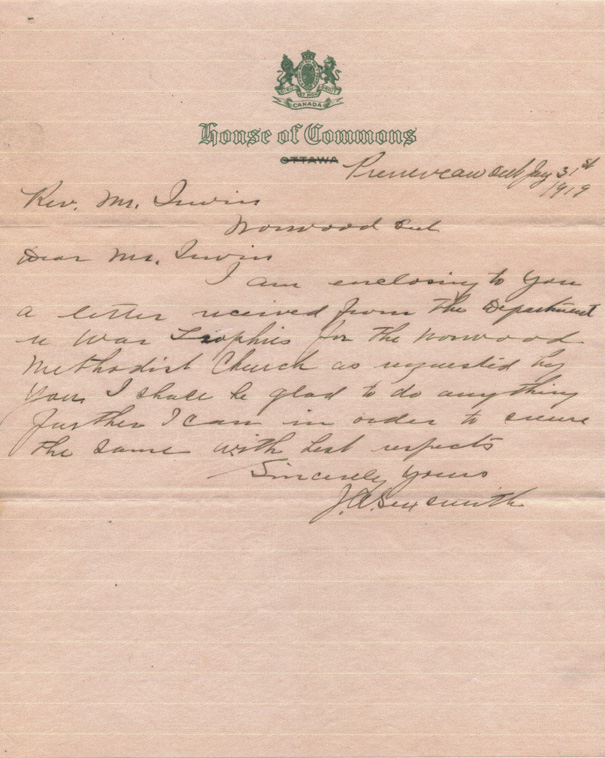 CANADA
House of Commons
OTTAWA
Ont Jany 31st
1919
Rev. Mr. Irwin
Norwood Ont
Dear Mr. Irwin
I am enclosing to you
a letter received from the Department
re War Trophies for the Norwood
Methodist Church as requested by
you I shall be glad to do anything
further I can in order to secure
the same with best respects
Sincerely yours
J.A. Sexsmith